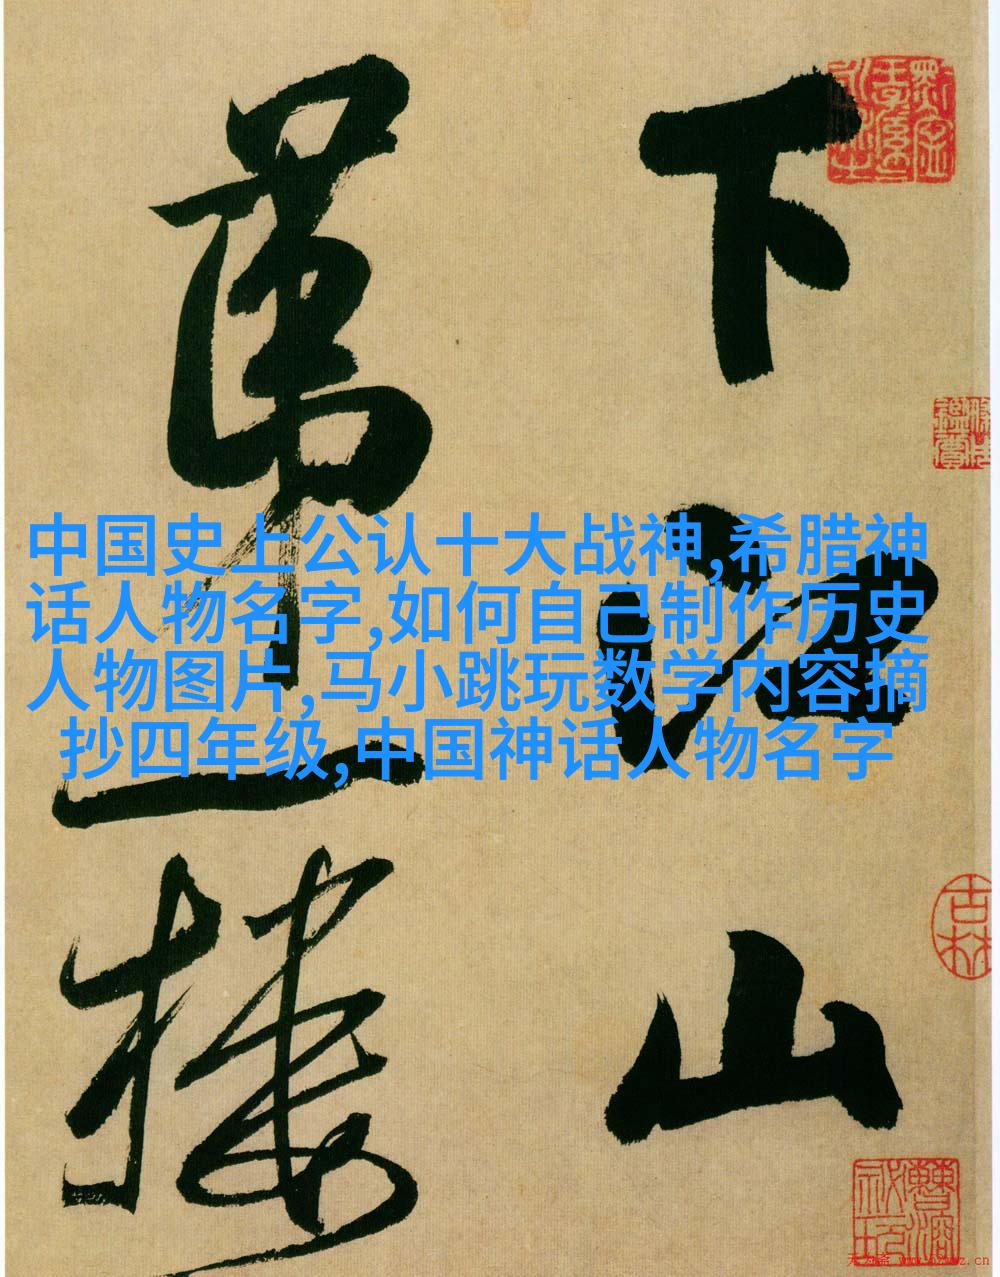 下江山
第一樓
中国史上公认十大战神,希腊神
话人物名字,如何自己制作历史
人物图片,马小跳玩数学内容摘
抄四年级,中国神话人物名字